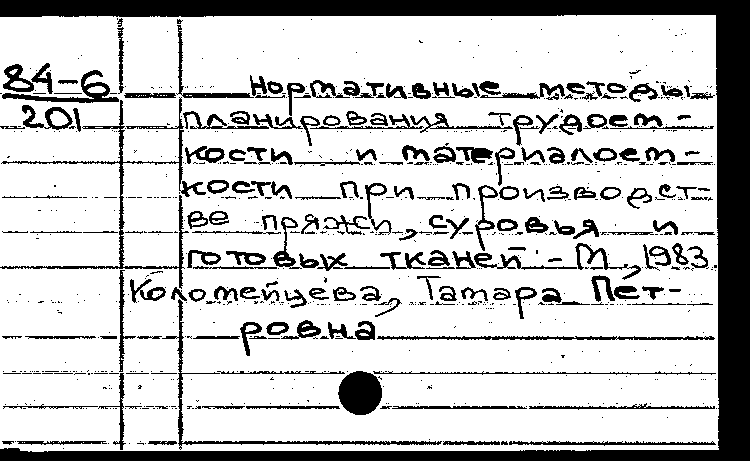 84-6
201
Нормативные методы
планирования трудоем-
кости и материалоем-
кости при производст-
ве пряжи, суровья и
готовых тканей. - М., 1983.
Коломейцева, Тамара Пет-
ровна